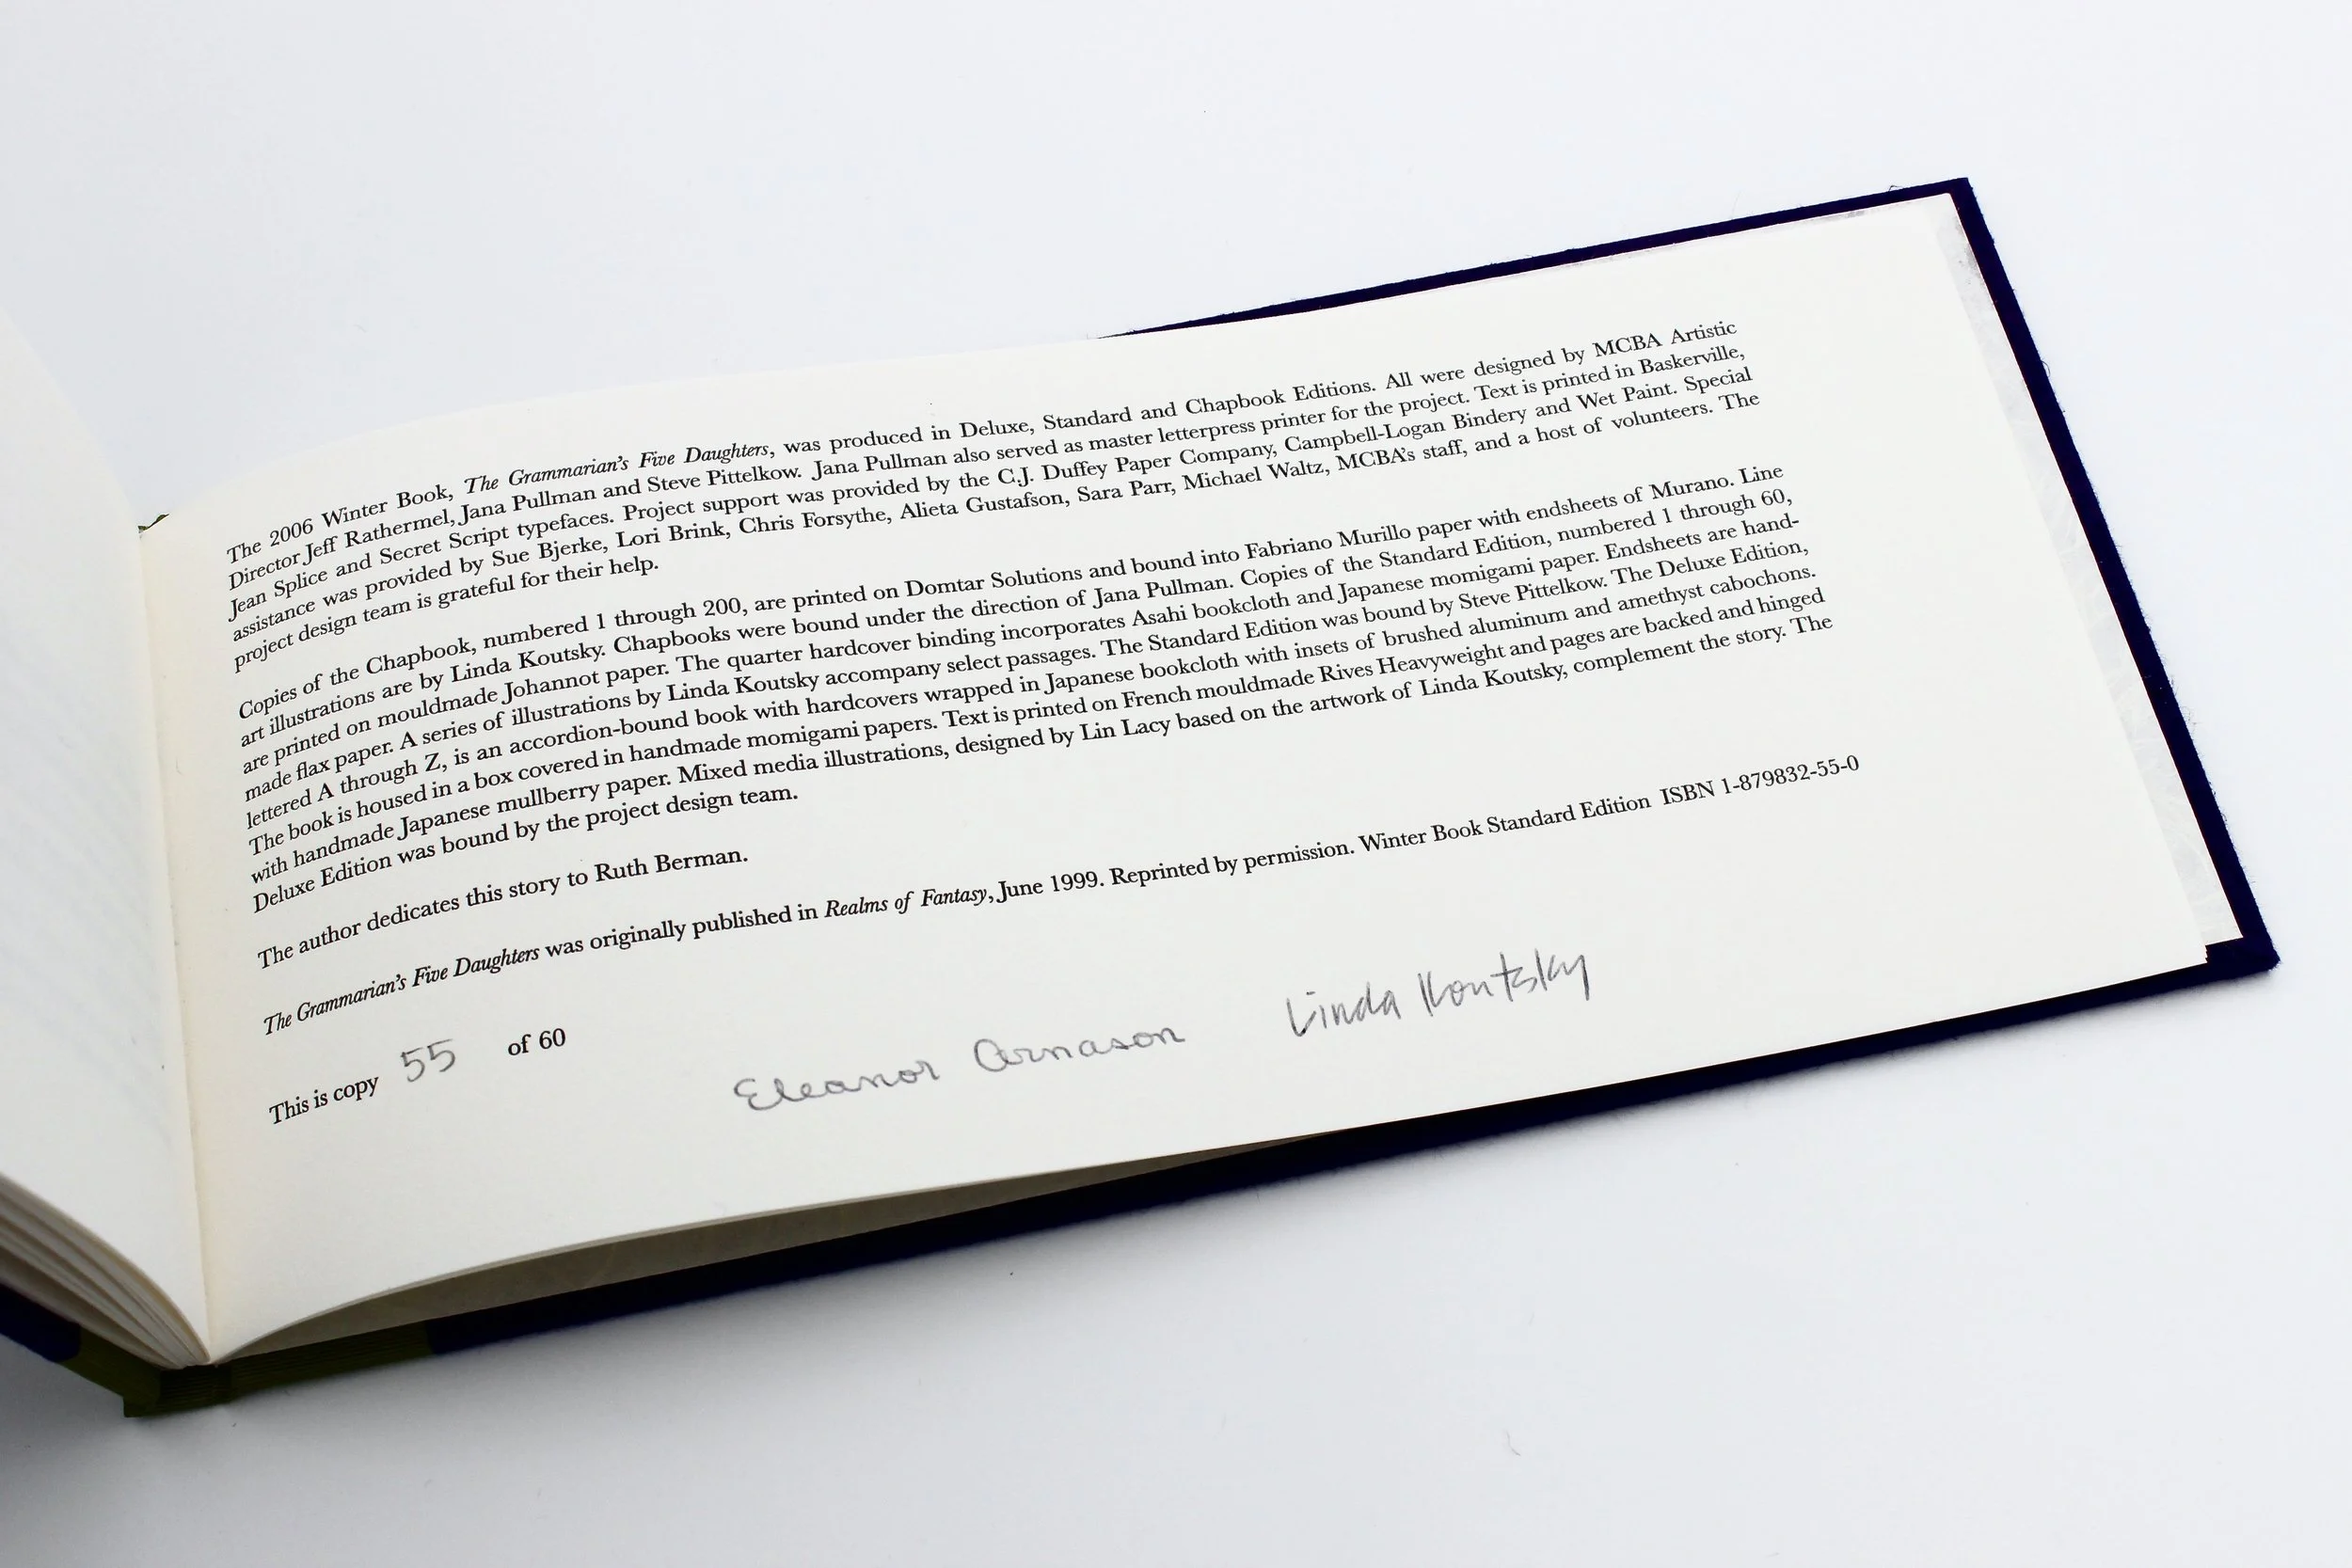 The 2006 Winter Book, The Grammarian's Five Daughters, was produced in Deluxe, Standard and Chapbook Editions. All were designed by MCBA Artistic
Director Jeff Rathermel, Jana Pullman and Steve Pittelkow. Jana Pullman also served as master letterpress printer for the project. Text is printed in Baskerville,
Jean Splice and Secret Script typefaces. Project support was provided by the C.J. Duffey Paper Company, Campbell-Logan Bindery and Wet Paint. Special
assistance was provided by Sue Bjerke, Lori Brink, Chris Forsythe, Alieta Gustafson, Sara Parr, Michael Waltz, MCBA's staff, and a host of volunteers. The
project design team is grateful for their help.
Copies of the Chapbook, numbered 1 through 200, are printed on Domtar Solutions and bound into Fabriano Murillo paper with endsheets of Murano. Line
art illustrations are by Linda Koutsky. Chapbooks were bound under the direction of Jana Pullman. Copies of the Standard Edition, numbered 1 through 60,
are printed on mouldmade Johannot paper. The quarter hardcover binding incorporates Asahi bookcloth and Japanese momigami paper. Endsheets are hand-
made flax paper. A series of illustrations by Linda Koutsky accompany select passages. The Standard Edition was bound by Steve Pittelkow. The Deluxe Edition,
lettered A through Z, is an accordion-bound book with hardcovers wrapped in Japanese bookcloth with insets of brushed aluminum and amethyst cabochons.
The book is housed in a box covered in handmade momigami papers. Text is printed on French mouldmade Rives Heavyweight and pages are backed and hinged
with handmade Japanese mullberry paper. Mixed media illustrations, designed by Lin Lacy based on the artwork of Linda Koutsky, complement the story. The
Deluxe Edition was bound by the project design team.
The author dedicates this story to Ruth Berman.
The Grammarian's Five Daughters was originally published in Realms of Fantasy, June 1999. Reprinted by permission. Winter Book Standard Edition ISBN 1-879832-55-0
This is copy 55 of 60
Eleanor Arnason Linda Koutsky